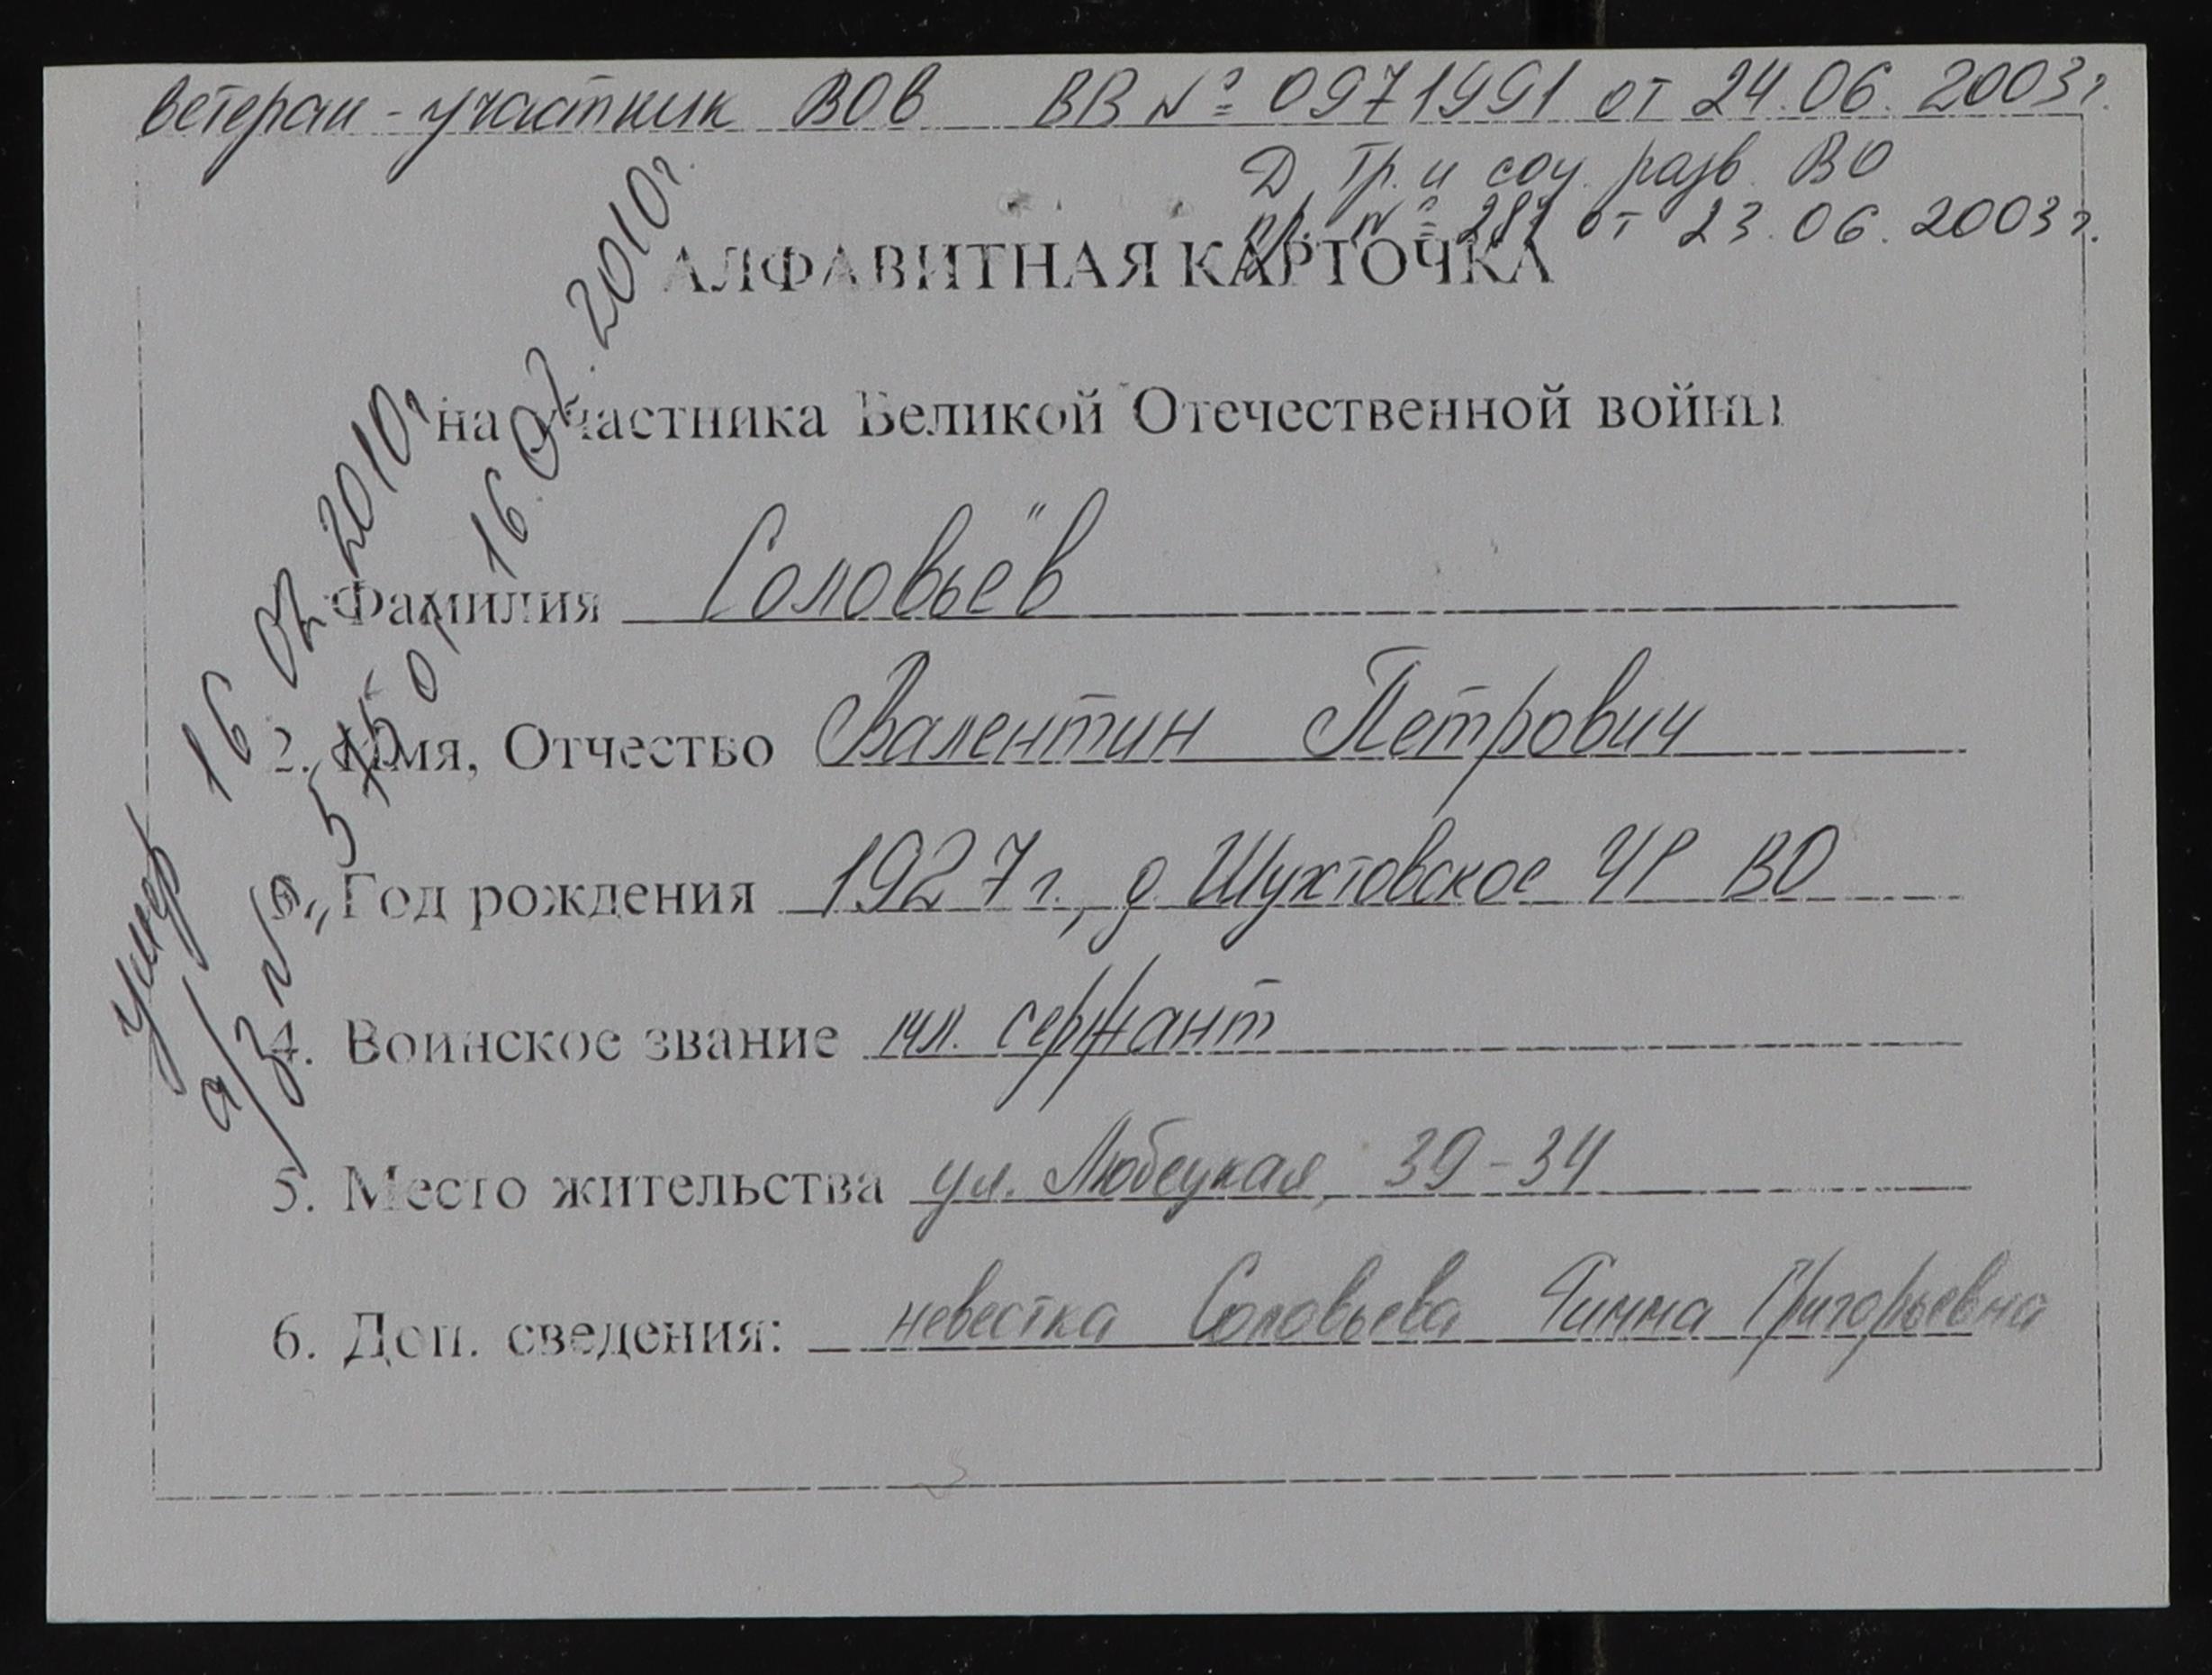 ветеран - участник ВОВ ВВ № 0971991 от 24.06.2003г.
Д. тр. и соц. разв. ВО
пр. № 287 от 23.06.2003г.
АЛФАВИТНАЯ КАРТОЧКА
на участника Великой Отечественной войны
Умер 16.02.2010г
а/з № от 16.02.2010г.
Фамилия Соловьёв
2. Имя, Отчество Валентин Петрович
3. Год рождения 1927г., д. Шухтовское ЧР ВО
4. Воинское звание мл. сержант
5. Место жительства ул. Любецкая, 39-34
6. Доп. сведения: невестка Соловьева Римма Григорьевна